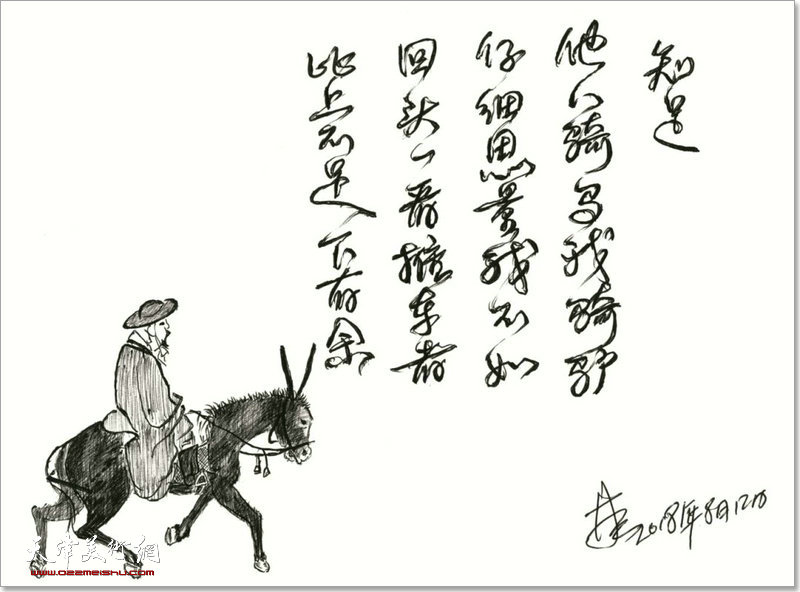 知足
他人骑马我骑驴
仔细思量我不如
回头一看推车者
比上不足下有余
2018年8月12日
天津美术网
www.022meishu.com